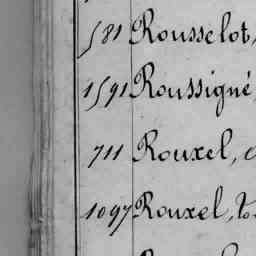 581 Rousselot,
1591 Roussigné,
711 Rouxel,
1097 Rouxel,